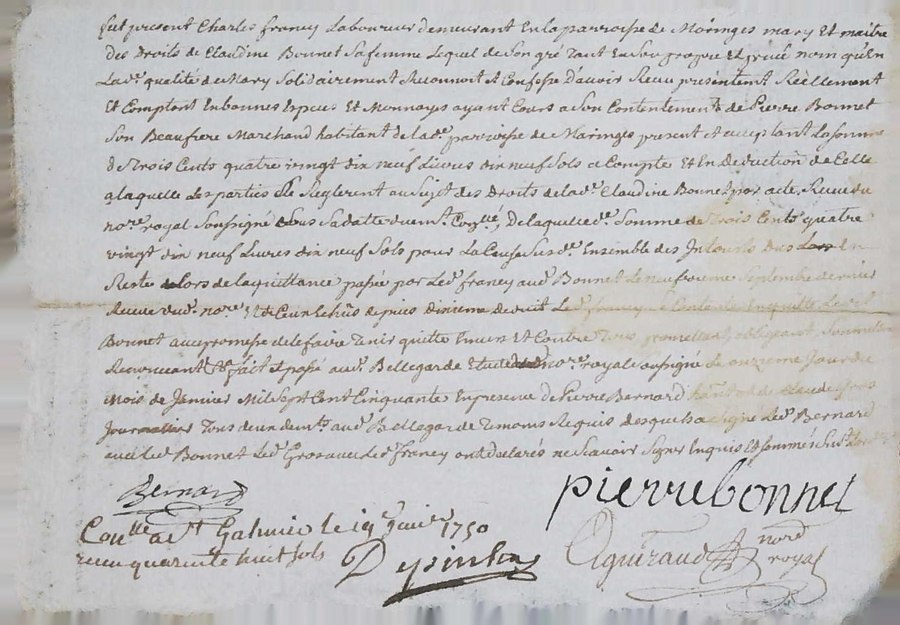 fut present Charles francy Laboureur demeurant En la parroisse de Maringes mary Et maitre
des Droits de Claudine Bonnet sa femme Lequel de son gré tant En son propre Et privé nom qu'En
La de. qualité de Mary solidairement Reconnoit et Confesse d'avoir Reçu presentemt. Réellement
Et Comptant En bonnes Especes Et Monnoyes ayant Cours a son Contentement de Pierre Bonnet
son Beaufrere Marchand habitant de lade. parroisse de Maringes present et acceptant La somme
de Trois Cents quatre vingt dix neuf Livres dix neuf sols a Compte Et En deduction de Celle
a laquelle les parties se Reglerent au sujet des Droits de lade. Claudine Bonnet par acte Reçu du
nore. royal soussigné sous sa datte duemt. Conllé, De laquelle de. somme de Trois Cents quatre
vingt dix neuf Livres dix neuf sols pour La Cause susde. Ensemble des
Reste Lors de la quittance passée par Led. francy aud. Bonnet Le neufvieme Septembre dernier
Reçue dud. nore. depuis Led. francy se Contente En quitte Led.
Bonnet avec promesse de le faire Tenir quitte Envers Et Contre Tous, promettant, obligeant, soumettant
Renonceant &c fait et passé aud. Bellegarde Etude nore. royal soussigné Le onzieme Jour du
Mois de Janvier Mil sept Cent Cinquante En presence de Pierre Bernard et de Claude Gros
Journallier Tous deux demts. aud. Bellegarde Temoins Requis desquels a signé Led. Bernard
avec Led. Bonnet Led. Gros avec Led. francy ont declarés ne Scavoir Signer Enquis Et sommés
Bernard
pierre bonnet
Conllé a St Galmier le 19e janvier 1750
reçu quarante huit sols
Aguiraud nore royal